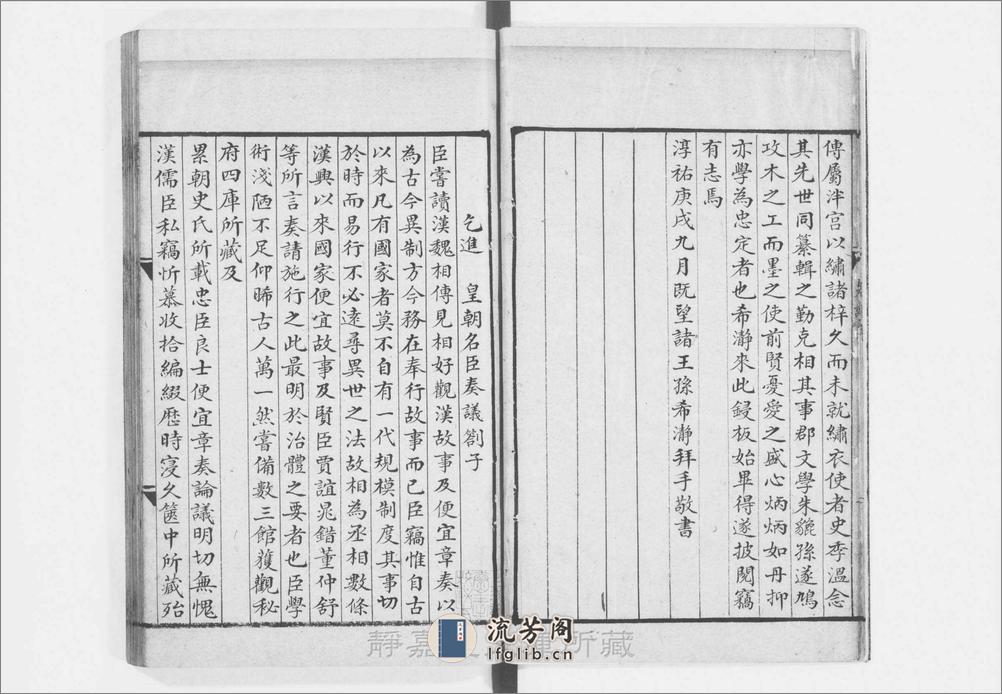 傳屬泮宫以繡諸梓久而未就繡衣使者史季温念
其先世同纂輯之勤克相其事郡文學朱貔孫遂鳩
攻木之工而墨之使前賢憂愛之盛心炳炳如丹抑
亦學為忠定者也希瀞來此鋟板始畢得遂披閱竊
有志焉
淳祐庚戌九月既望諸王孫希瀞拜手敬書
乞進 皇朝名臣奏議劄子
臣嘗讀漢魏相傳見相好觀漢故事及便宜章奏以
為古今異制方今務在奉行故事而已臣竊惟自古
以來凡有國家者莫不自有一代規模制度其事切
於時而易行不必逺尋異世之法故相為丞相數條
漢興以來國家便宜故事及賢臣賈誼晁錯董仲舒
等所言奏請施行之此最明於治體之要者也臣學
術淺陋不足仰晞古人萬一然嘗備數三館獲觀秘
府四庫所藏及
累朝史氏所載忠臣良士便宜章奏論議明切無愧
漢儒臣私竊忻慕收拾編綴歷時寖久篋中所藏殆
靜嘉 所藏
流芳阁
lfglib.cn